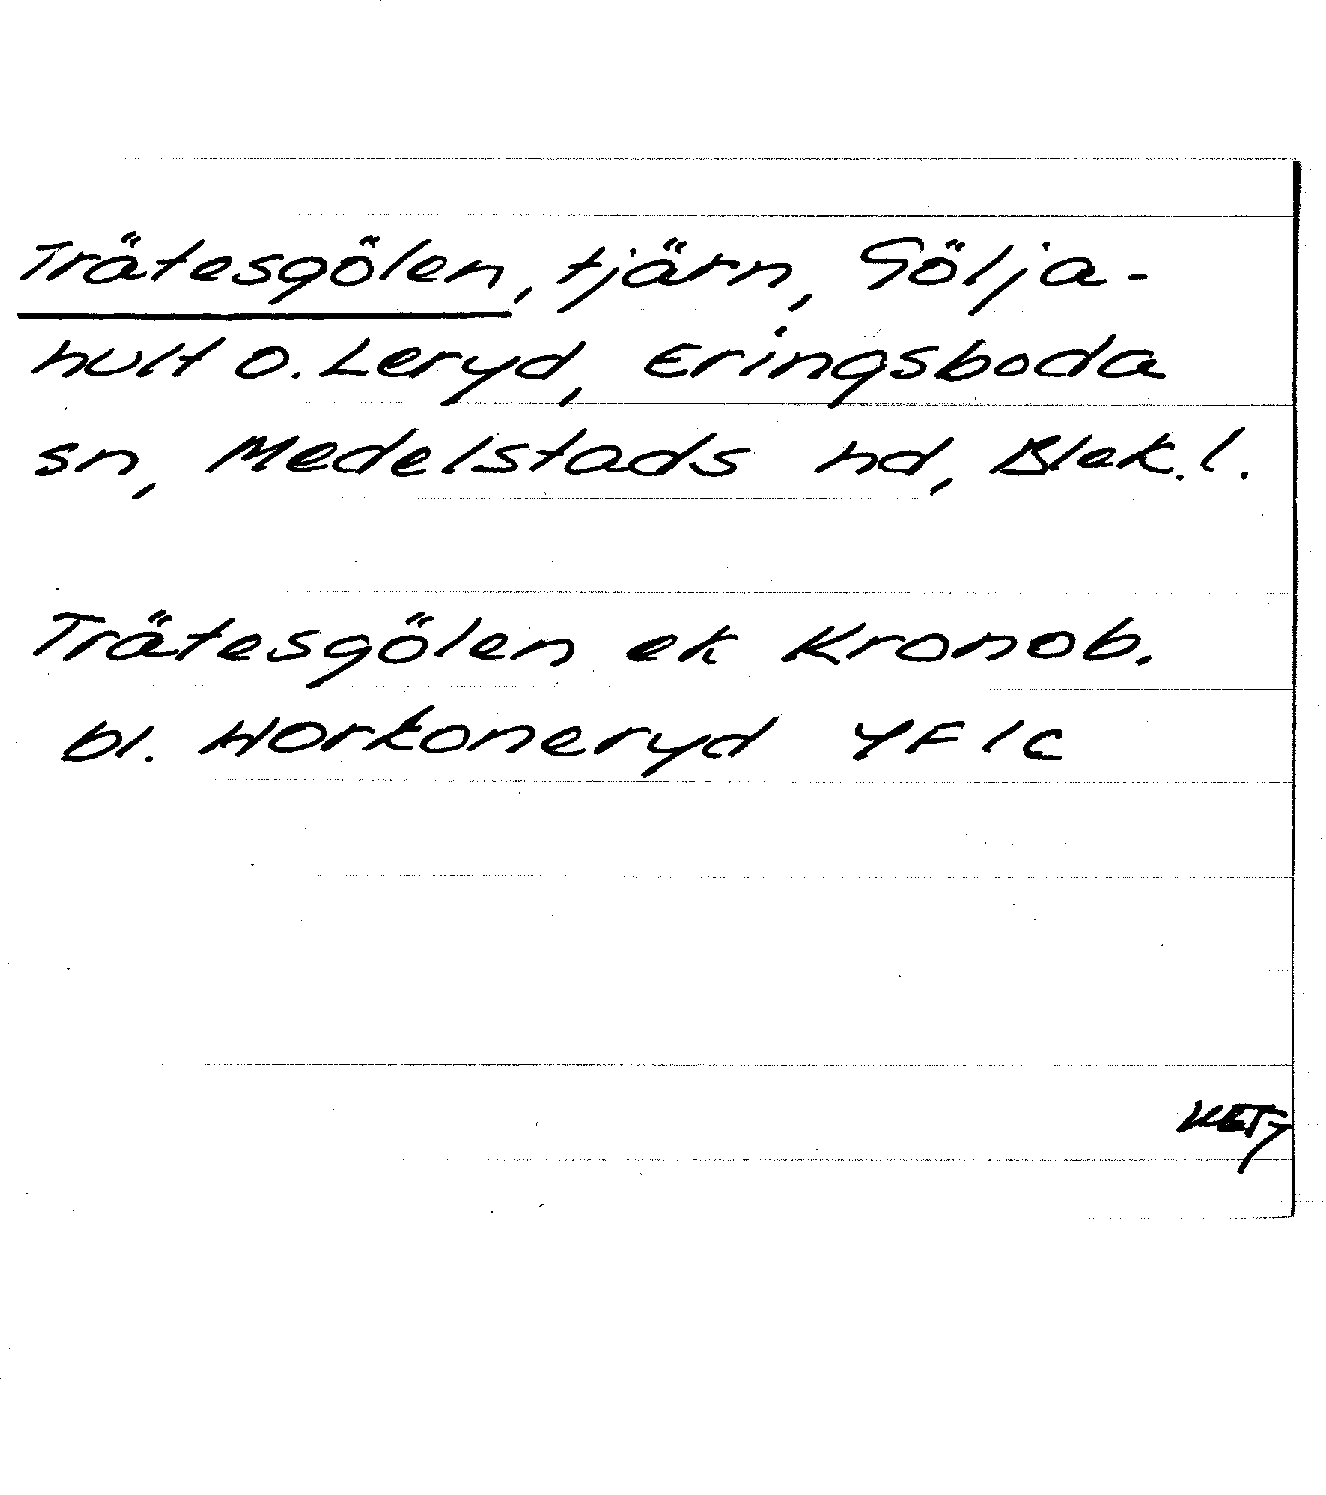 Trätesgölen, tjärn, Gölja-
hult o. Leryd, Eringsboda
sn, Medelstads hd, Blek. l.
Trätesgölen ek Kronob.
bl. Horkoneryd YF1c